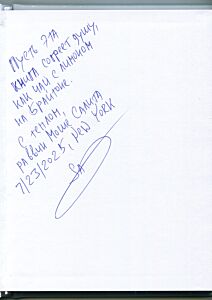 Пусть эта
книга согреет душу,
как чай с лимоном
на Брайтоне.
С теплом,
раввин Моше Салита
7/23/2025, New York
SA